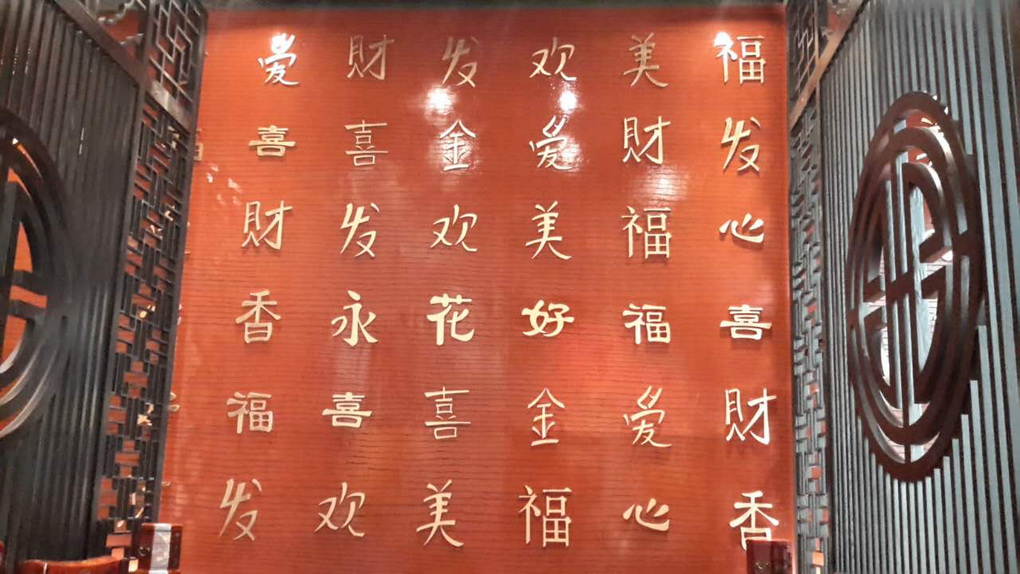 爱 财 发 欢 美 福
喜 喜 金 爱 财 发
财 发 欢 美 福 心
香 永 花 好 福 喜
福 喜 喜 金 爱 财
发 欢 美 福 心 香